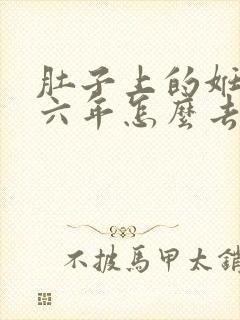 肚子上的妊
六年怎麼去
不披馬甲太銷